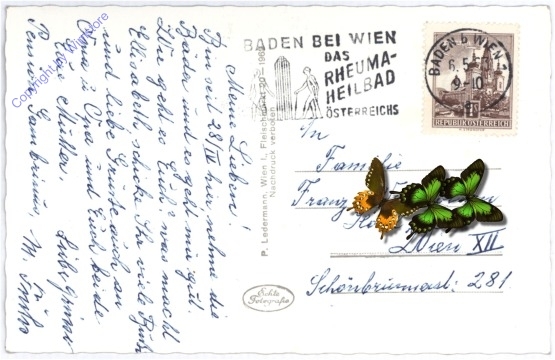 Meine Lieben!
Bin seit 28/IV hier, nehme die
Bäder und es geht mir gut.
Wie geht es Euch? was macht
Elisabeth schicke Ihr viele Bussi
und liebe Grüße auch an
Oma u Opa und Euch beide
Eure Mutter.
Liebe Grüße
Pension Gambrinus,
P. Ledermann, Wien I, Fleischmarkt 20 - 1969
Nachdruck verboten
Echte
Fotografie
BADEN BEI WIEN
DAS
RHEUMA-
HEILBAD
ÖSTERREICHS
BADEN b WIEN
6.5
9-10
REPUBLIK ÖSTERREICH
In
Familie
Franz
Wien XII
Schönbrunnerst: 281
Copyright by